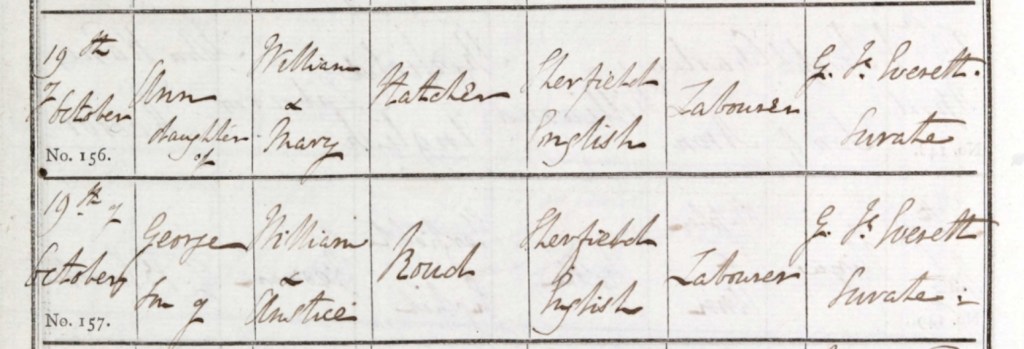 19th
of October
No. 156.
Ann
daughter
of
William
&
Mary
Hatcher
Sherfield
English
Labourer
G. Fs. Everett.
Curate
19th of
October
No. 157.
George
Son of
William
&
Anstice
Roud
Sherfield
English
Labourer
G. Fs. Everett
Curate :